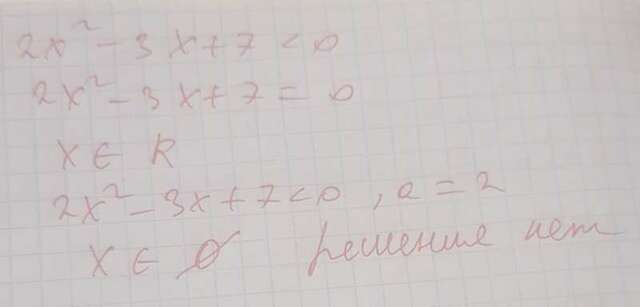 2x² - 3x + 7 < 0
2x² - 3x + 7 = 0
x ∈ R
2x² - 3x + 7 < 0, a = 2
x ∈ ∅ решение нет